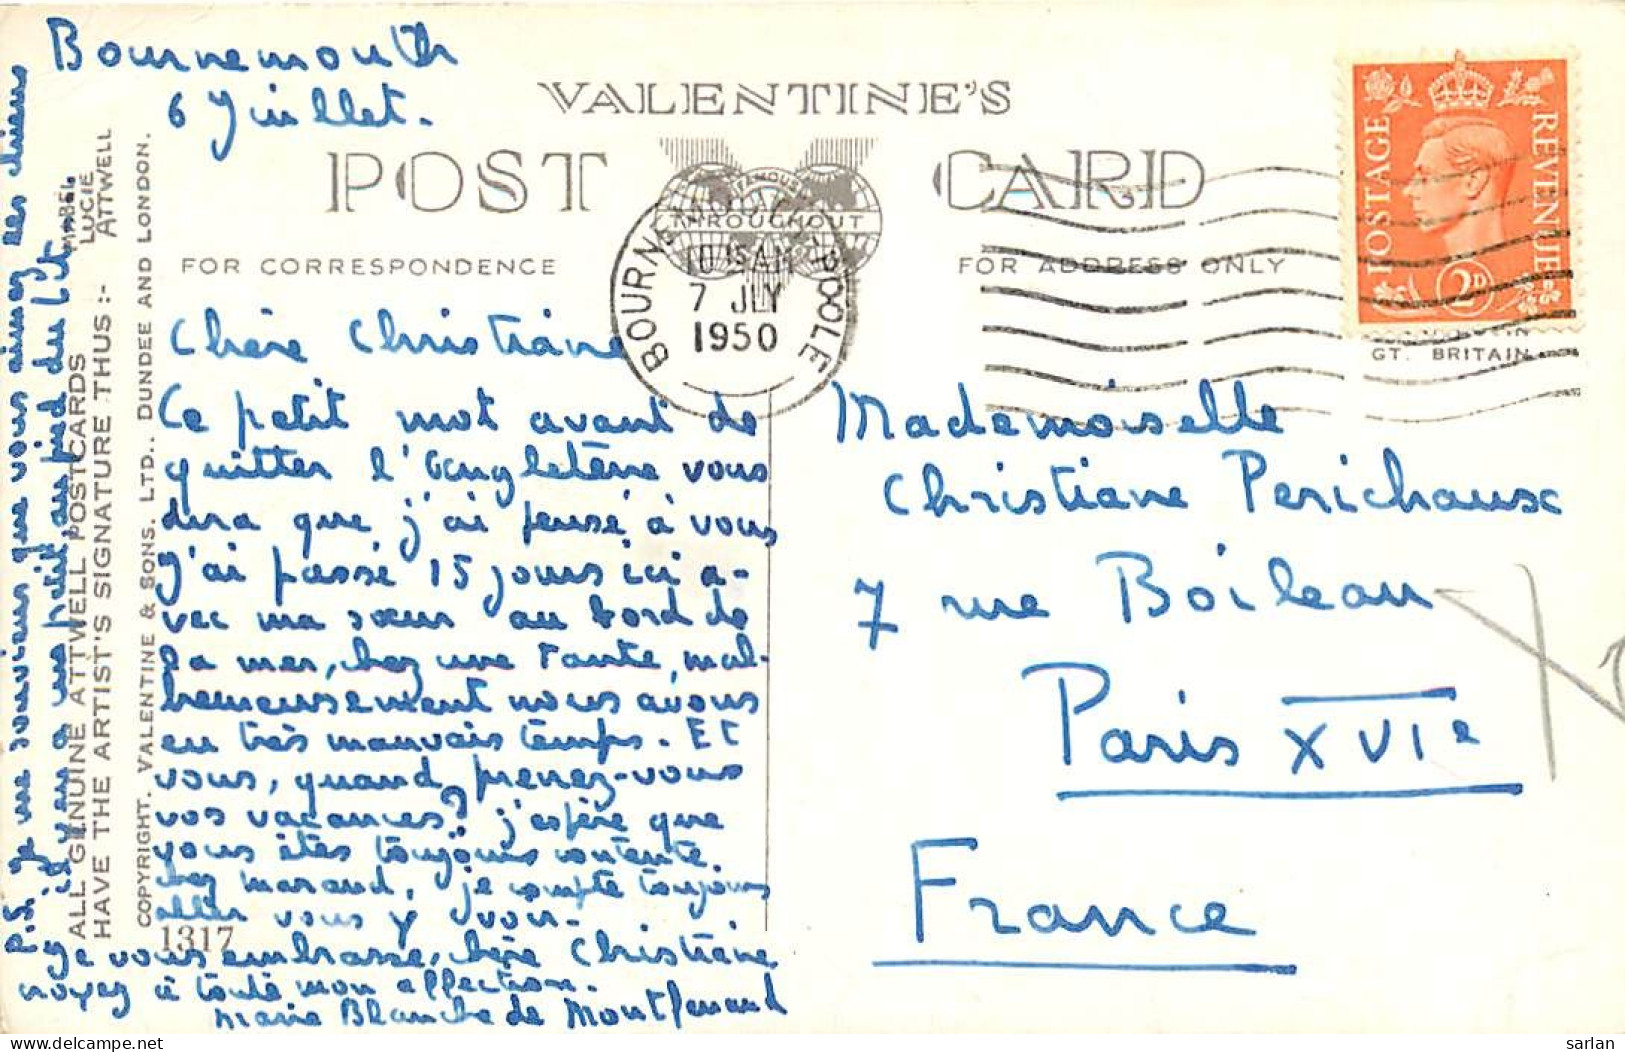 Bournemouth
6 Juillet.
VALENTINE'S
POST CARD
FAMOUS
THROUGHOUT
FOR CORRESPONDENCE
FOR ADDRESS ONLY
BOURNEMOUTH POOLE
10 15 AM
7 JLY
1950
POSTAGE REVENUE
2D
GT. BRITAIN
Chère Christiane
Ce petit mot avant de
quitter l'Angleterre vous
dira que j'ai pensé à vous
J'ai passé 15 jours ici a-
vec ma sœur au bord de
la mer, chez une tante, mal-
heureusement nous avons
eu très mauvais temps. Et
vous, quand prenez-vous
vos vacances? j'espère que
vous êtes toujours contente
chez Maraud, je compte toujours
aller vous y voir.
Je vous embrasse, chère Christiane
croyez à toute mon affection.
Marie Blanche de Montferrand
P.S. Je me souviens que vous aimez les chiens
il y en a un petit au pied du lit.
ALL GENUINE ATTWELL POSTCARDS
HAVE THE ARTIST'S SIGNATURE THUS :-
MABEL
LUCIE
ATTWELL
COPYRIGHT. VALENTINE & SONS. LTD., DUNDEE AND LONDON.
1317
Mademoiselle
Christiane Perichaux
7 rue Boileau
Paris XVIe
France
delcampe.net
sarlan